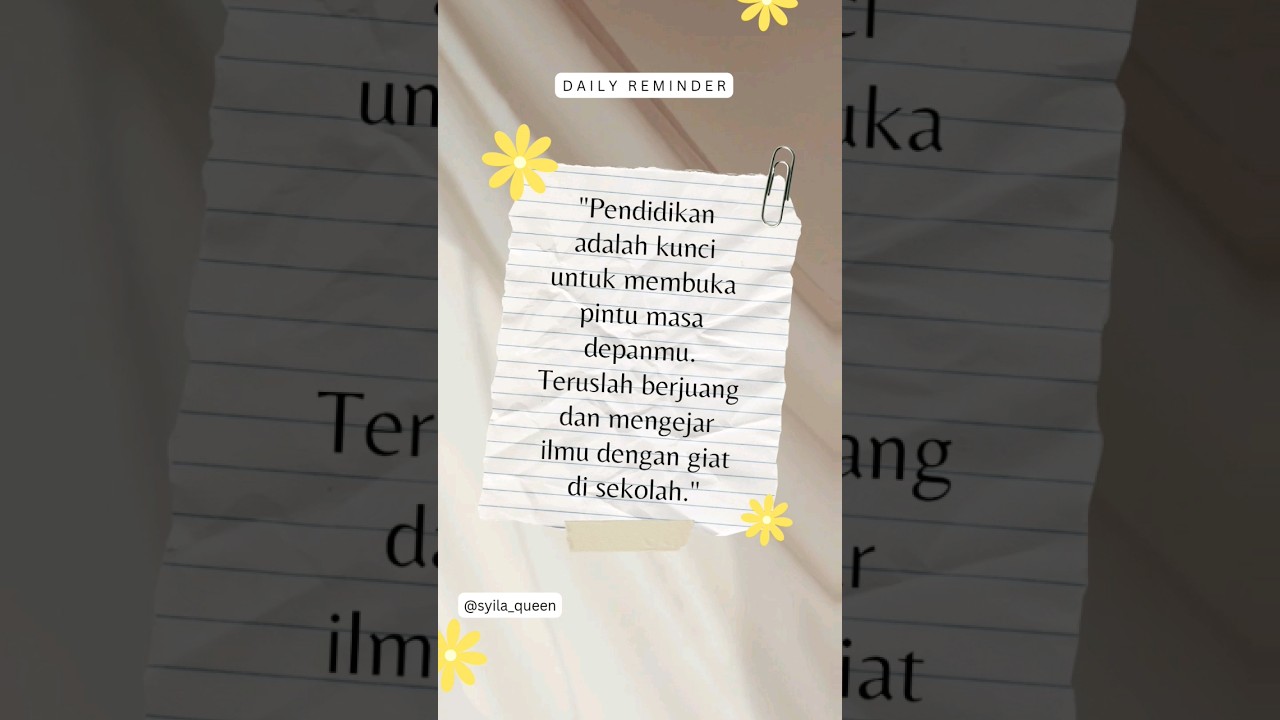 DAILY REMINDER
"Pendidikan
adalah kunci
untuk membuka
pintu masa
depanmu.
Teruslah berjuang
dan mengejar
ilmu dengan giat
di sekolah."
@syila_queen